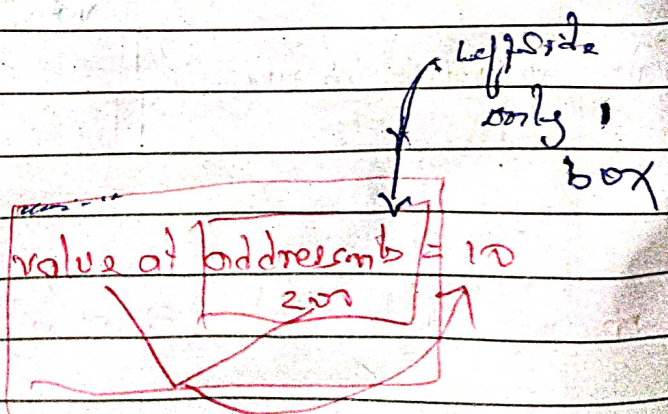 Left Side
only 1
box
value at address in b = 10
200